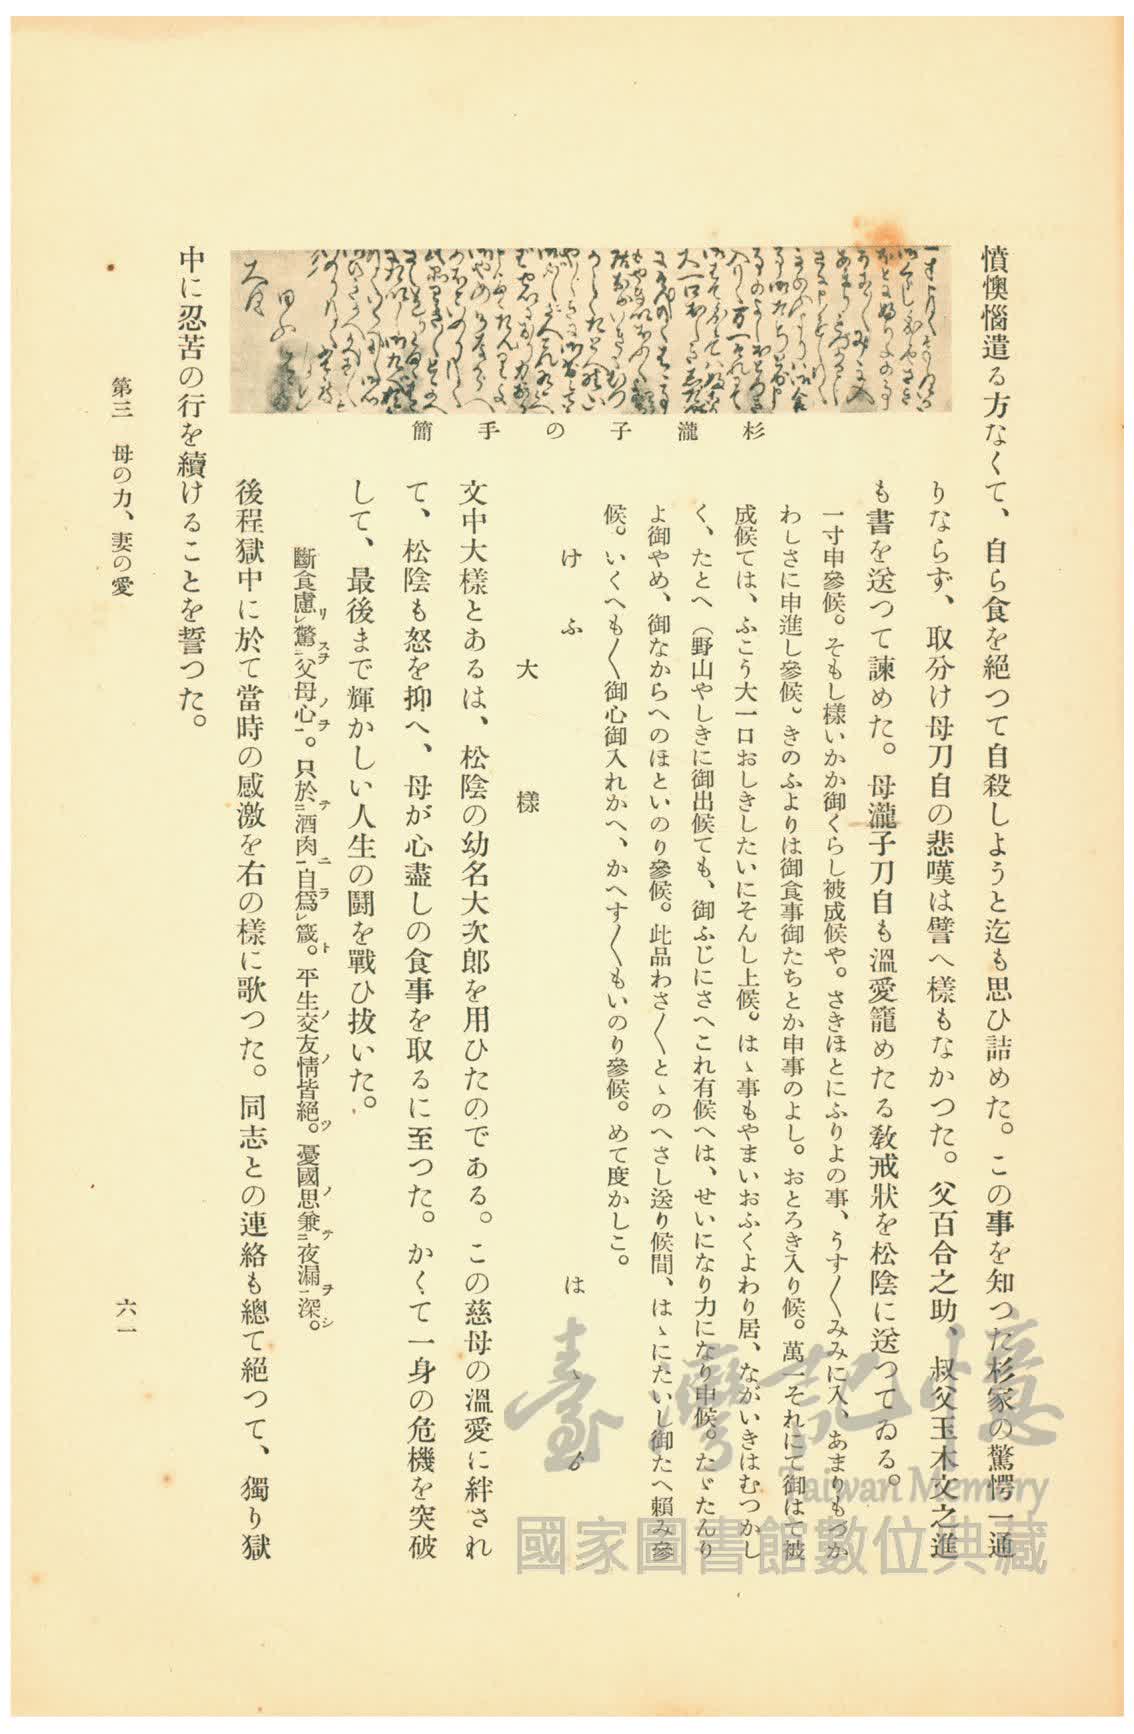 憤懊惱遣る方なくて、自ら食を絕つて自殺しようと迄も思ひ詰めた。この事を知つた杉家の驚愕一通
りならず、取分け母刀自の悲嘆は譬へ樣もなかつた。父百合之助、叔父玉木文之進
も書を送つて諫めた。母瀧子刀自も溫愛籠めたる敎戒狀を松陰に送つてゐる。
一寸申參候。そもし樣いかか御くらし被成候や。さきほとにふりよの事、うす〱みみに入、あまりもつか
わしさに申進し參候。きのふよりは御食事御たちとか申事のよし。おとろき入り候。萬一それにて御はて被
成候ては、ふこう大一口おしきしたいにそんし上候。はゝ事もやまいおふくよわり居、ながいきはむつかし
く、たとへ（野山やしきに御出候ても、御ふじにさへこれ有候へは、せいになり力になり申候。たゞたんり
よ御やめ、御なからへのほといのり參候。此品わさ〱とゝのへさし送り候間、はゝにたいし御たへ賴み參
候。いくへも〱御心御入れかへ、かへす〱もいのり參候。めて度かしこ。
けふ　はゝゟ
大樣
文中大樣とあるは、松陰の幼名大次郎を用ひたのである。この慈母の溫愛に絆され
て、松陰も怒を抑へ、母が心盡しの食事を取るに至つた。かくて一身の危機を突破
して、最後まで輝かしい人生の鬪を戰ひ拔いた。
斷食慮リレ驚スヲ二父母心ノヲ一。只於テ二酒肉ニ一自爲ラレ箴ト。平生ノ交友ノ情皆絕ツ。憂國ノ思兼テ二夜漏ヲ一深シ。
後程獄中に於て當時の感激を右の樣に歌つた。同志との連絡も總て絕つて、獨り獄
中に忍苦の行を續けることを誓つた。
杉瀧子の手簡
第三　母の力、妻の愛
六一
臺灣記憶
Taiwan Memory
國家圖書館數位典藏